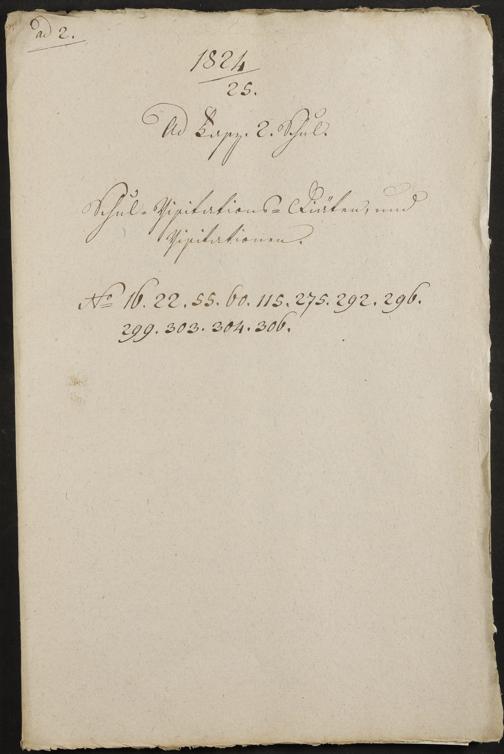 ad 2.
1824
25.
Ad Kapp. 2. Schul.
Schul-Visitations-Diäten, und
Visitationen.
No 16. 22. 55. 60. 115. 275. 292. 296.
299. 303. 304. 306.